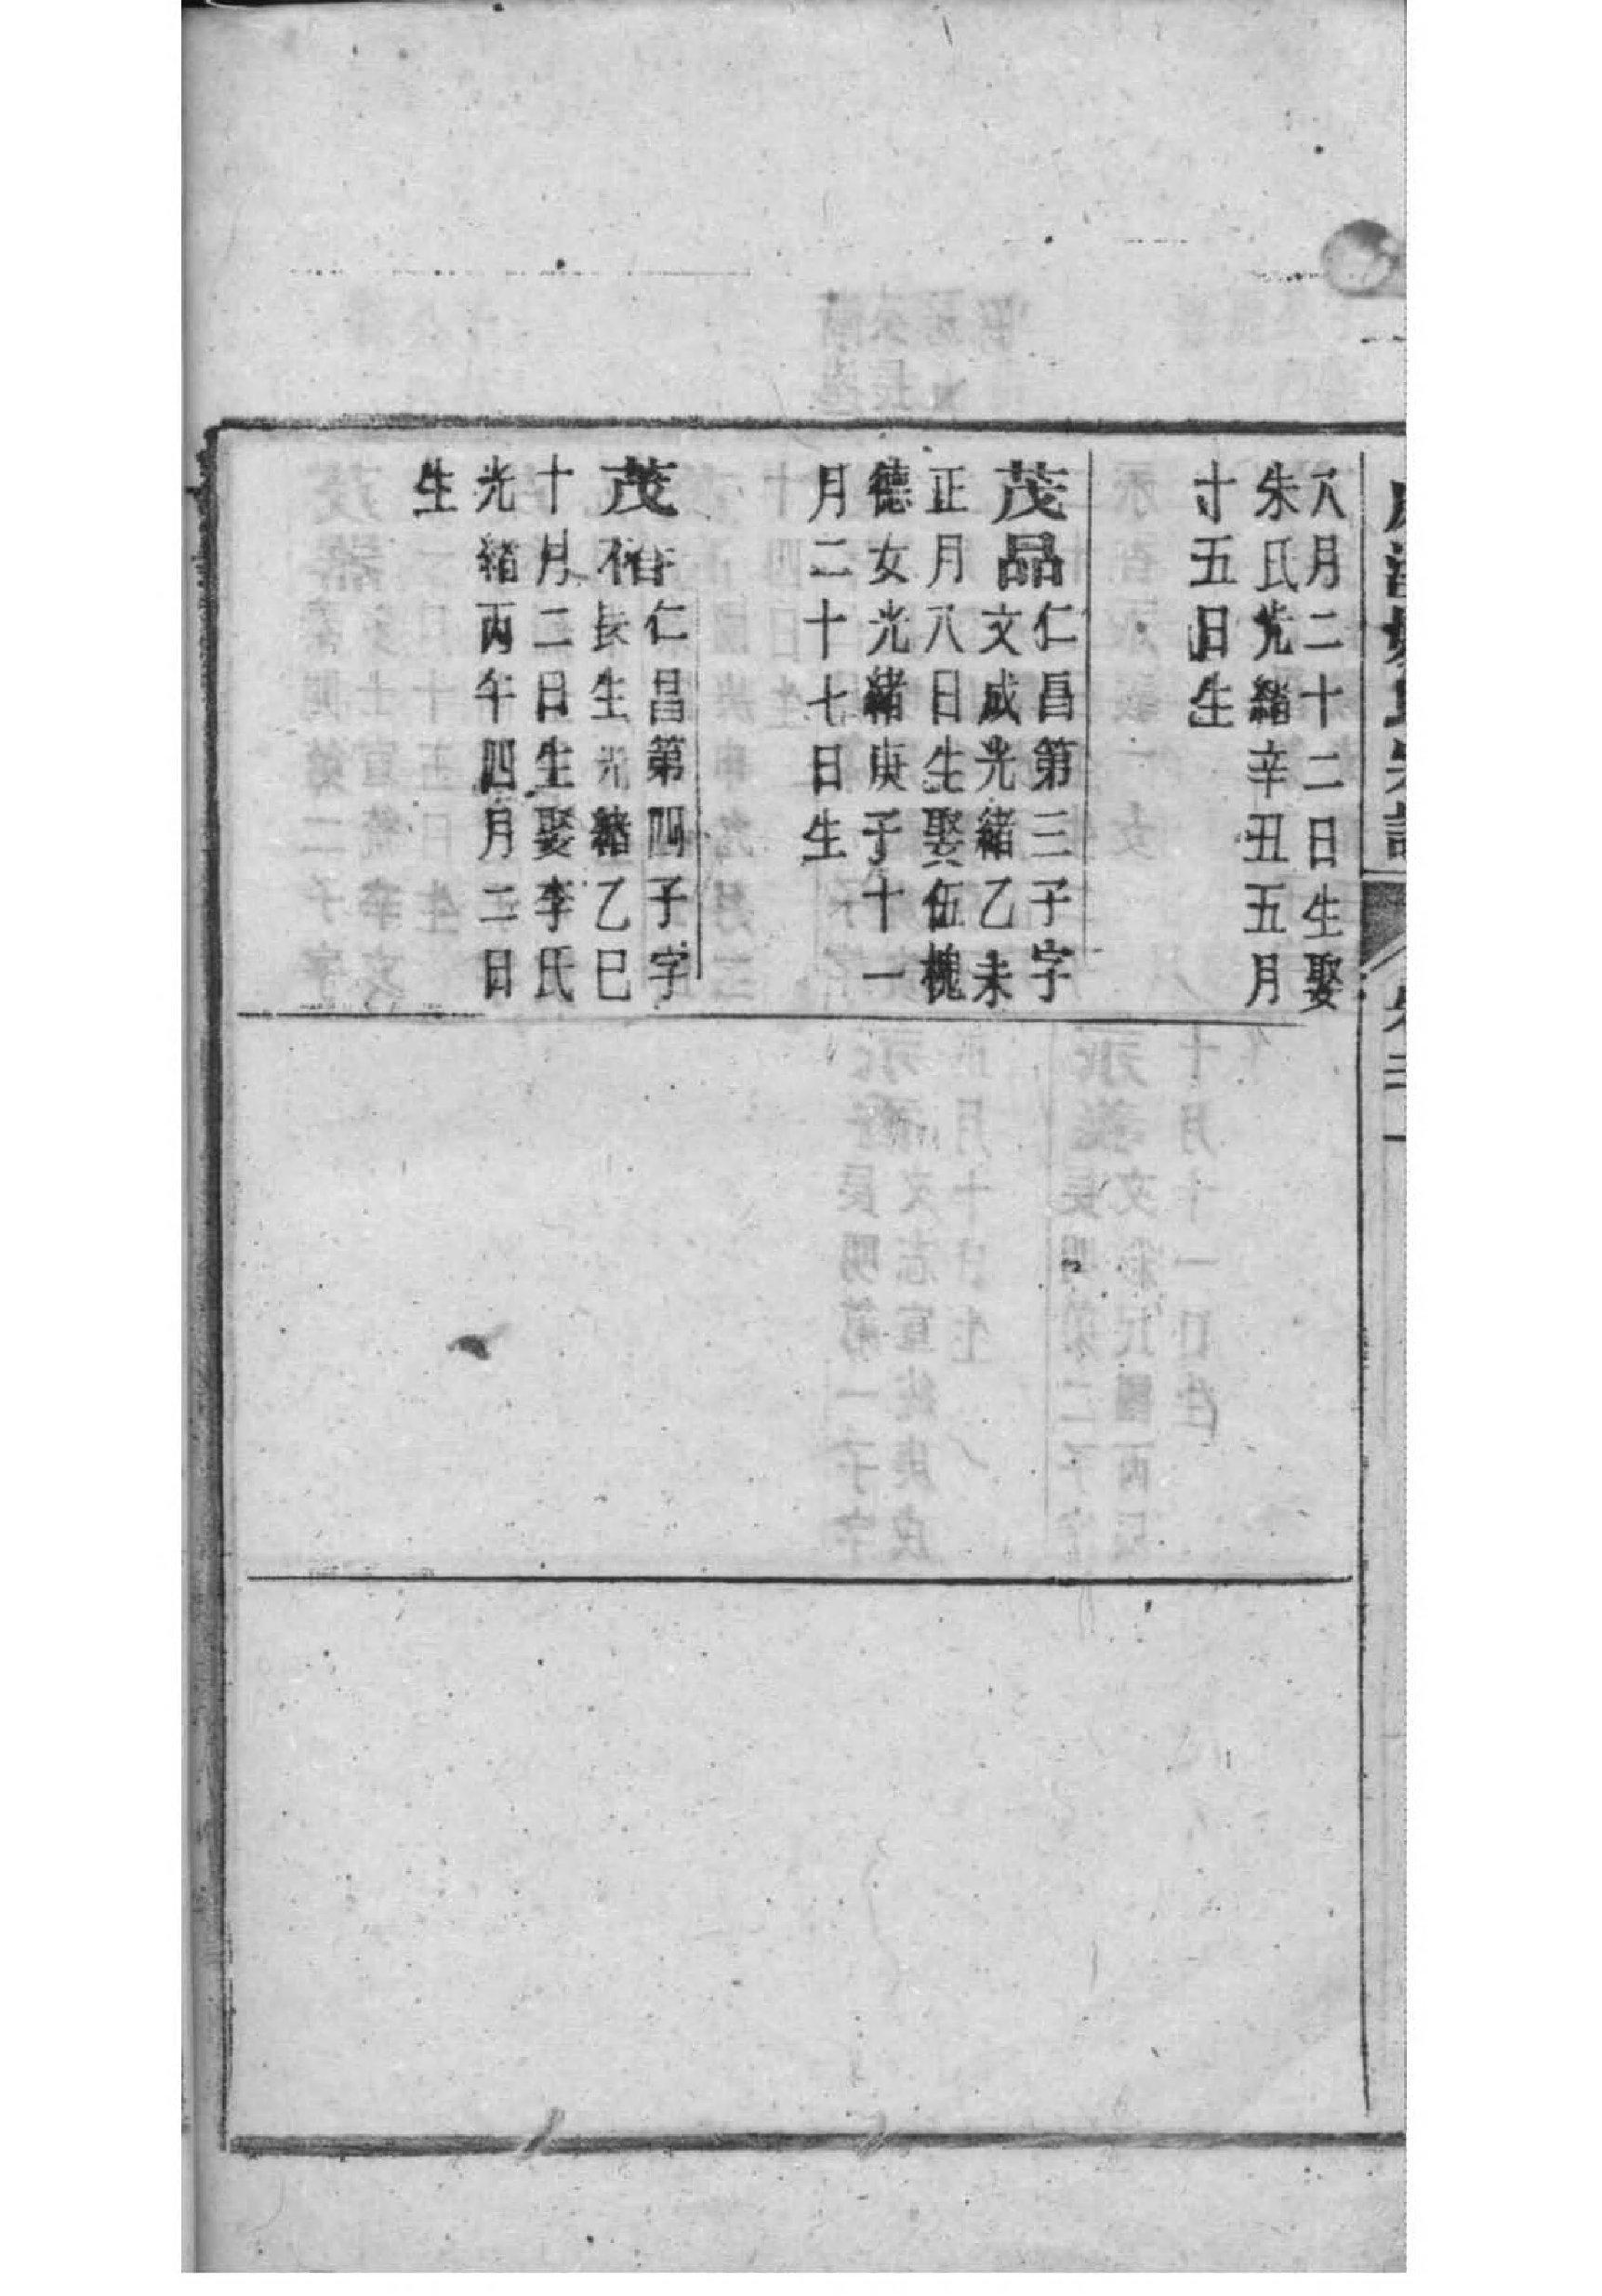 八月二十二日生娶
朱氏光緒辛丑五月
十五日生
茂品仁昌第三子字
文成光緒乙未
正月八日生娶伍槐
德女光緒庚子十一
月二十七日生
茂 仁昌第四子字
長生光緒乙巳
十月二日生娶李氏
光緒丙午四月二日
生